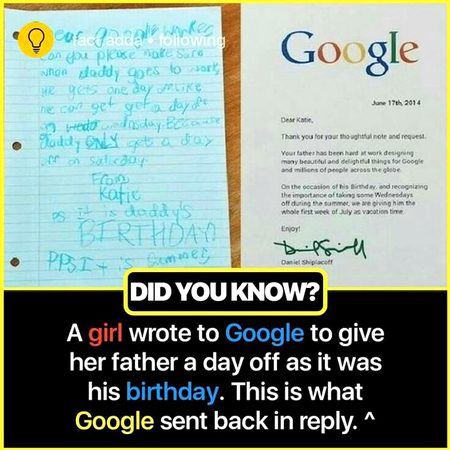 fact.adda • following
Dear google worker
can you please make sure
when daddy goes to work
he gets one day off like
he can get get a day off
on wednesday because
daddy ONLY gets a day
off on saturday
From
Katie
ps. It is daddy's
BIRTHDAY!
PPS It is summer,
Google
June 17th, 2014
Dear Katie,
Thank you for your thoughtful note and request.
Your father has been hard at work designing
many beautiful and delightful things for Google
and millions of people across the globe.
On the occasion of his Birthday, and recognizing
the importance of taking some Wednesdays
off during the summer, we are giving him the
whole first week of July as vacation time.
Enjoy!
Daniel Shiplacoff
DID YOU KNOW?
A girl wrote to Google to give
her father a day off as it was
his birthday. This is what
Google sent back in reply. ^